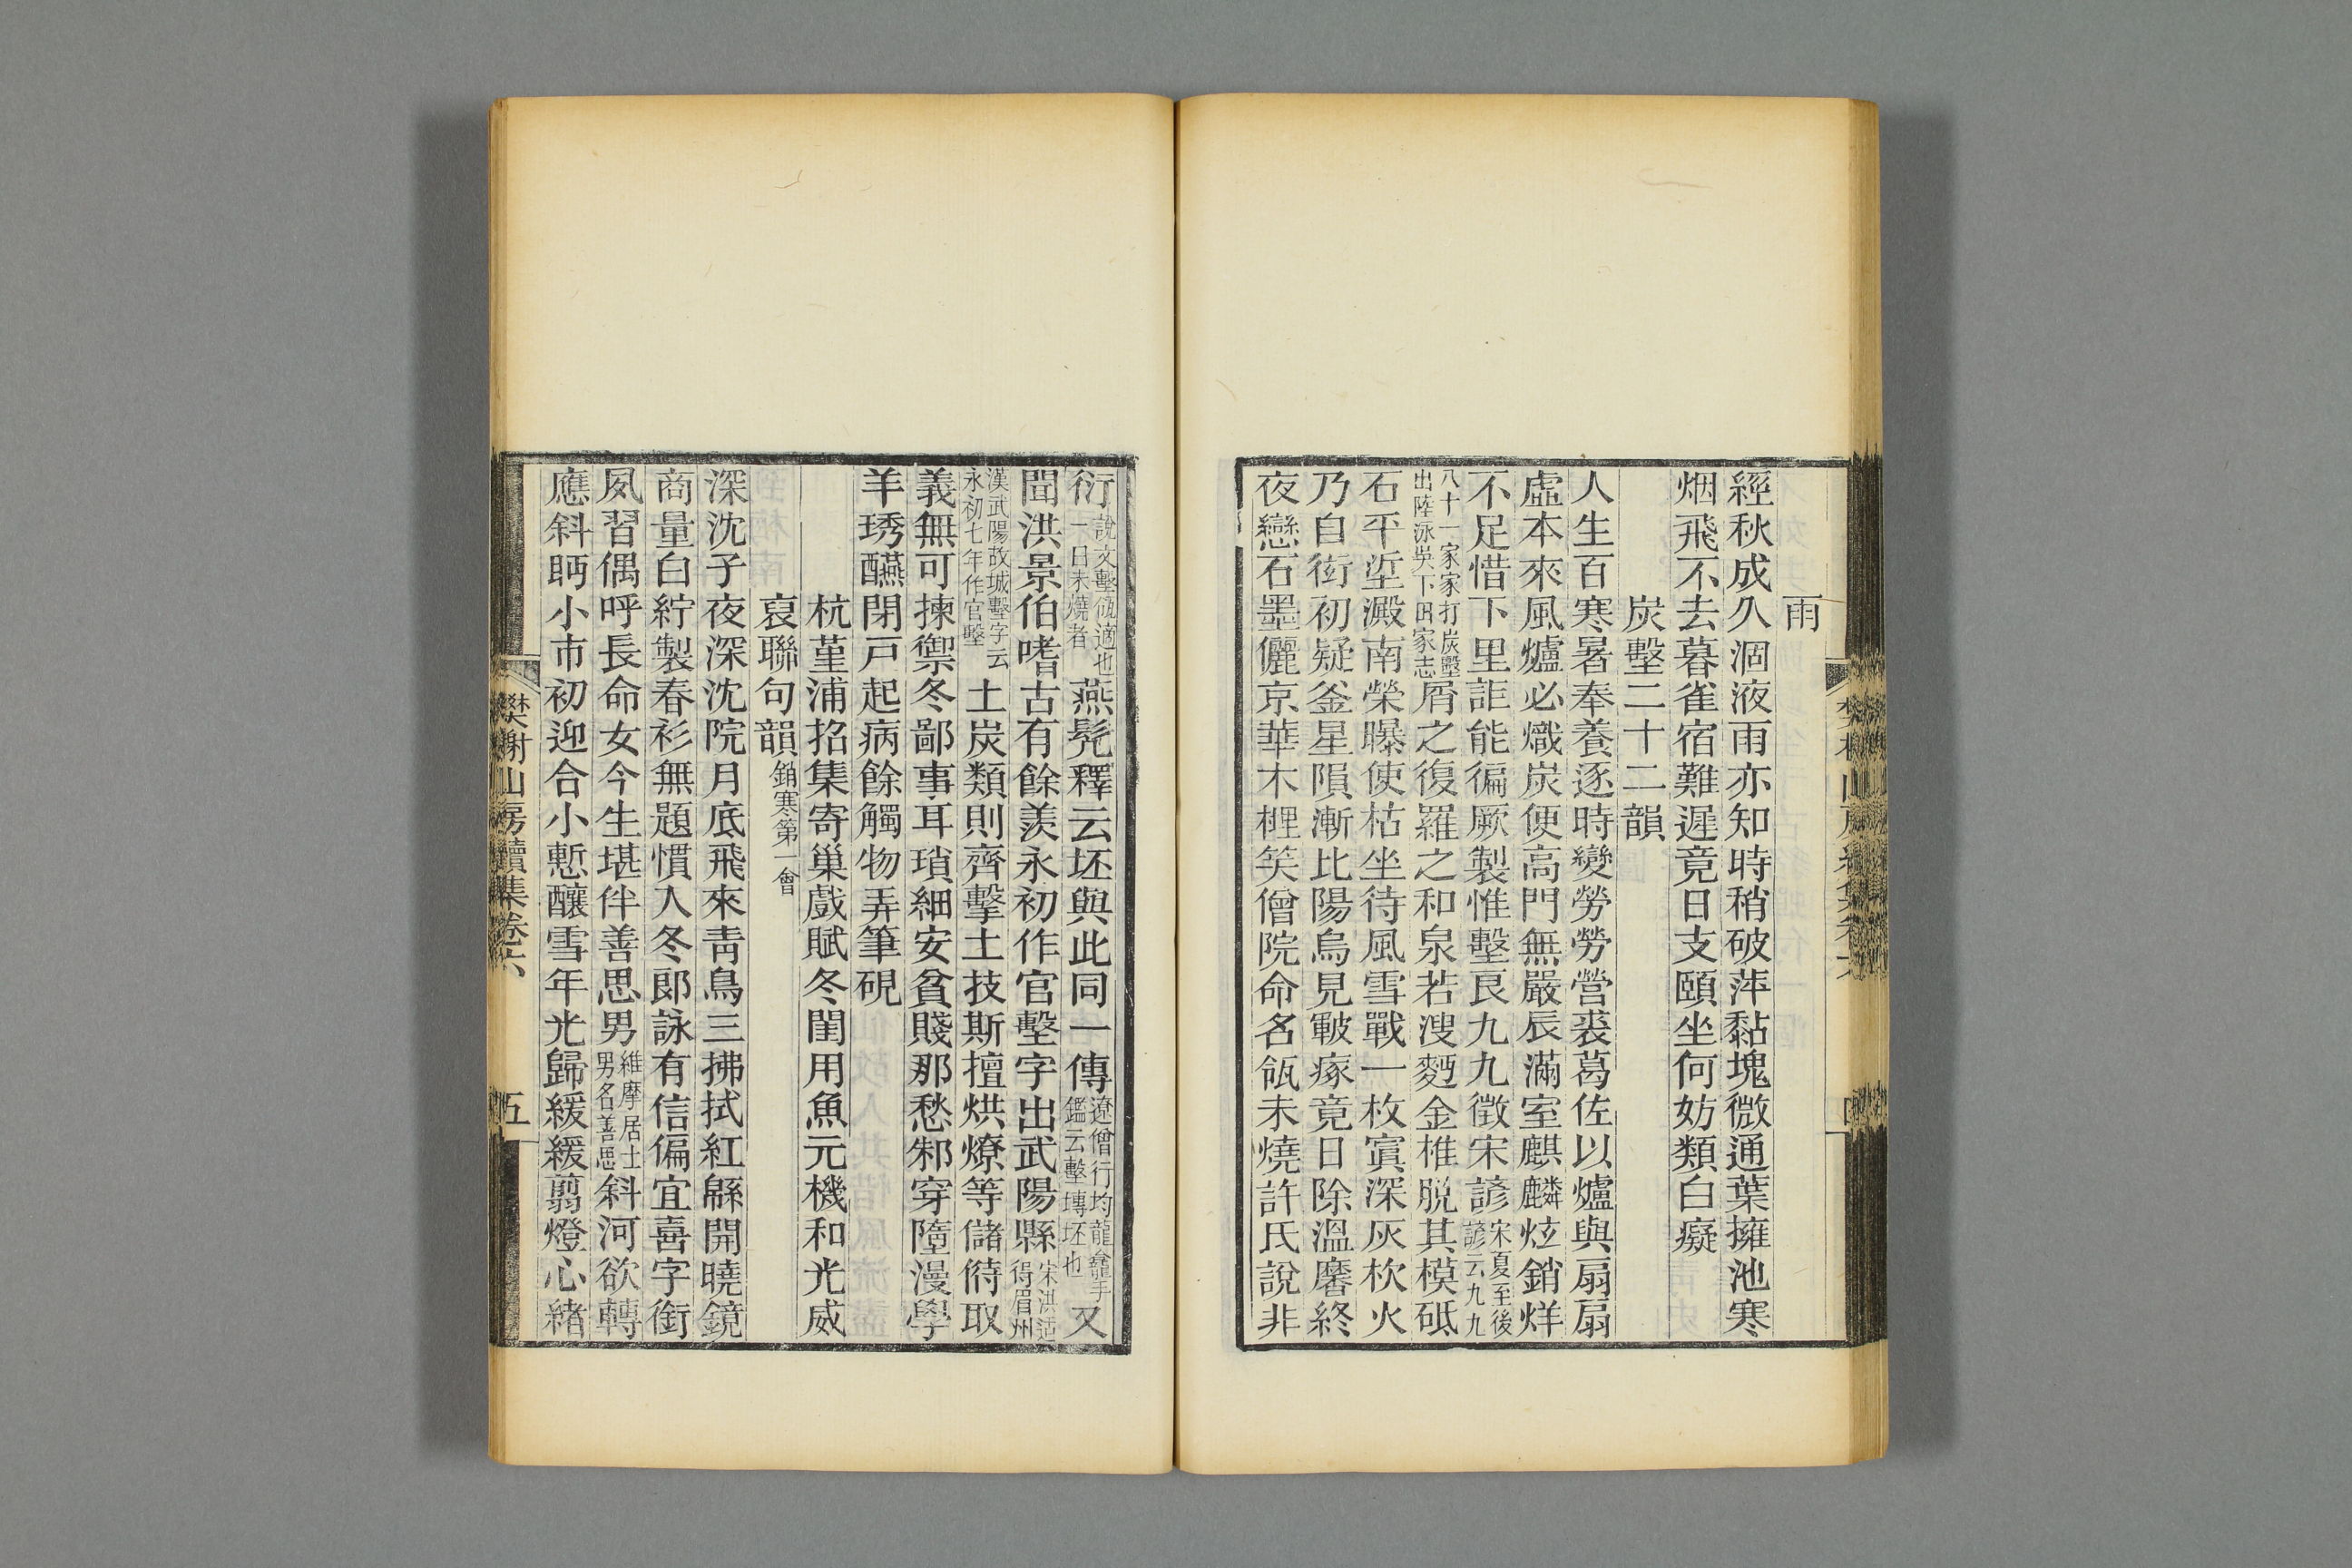 雨
經秋成久涸液雨亦知時稍破萍黏塊微通葉擁池寒
烟飛不去暮雀宿難遲竟日支頤坐何妨類白癡
炭墼二十二韻
人生百寒暑奉養逐時變勞勞營裘葛佐以爐與扇扇
虛本來風爐必熾炭便高門無嚴辰滿室麒麟炫銷烊
不足惜下里詎能徧厥製惟墼良九九徵宋諺宋夏至後諺云九九
八十一家家打炭墼出陸泳吳下田家志屑之復羅之和泉若溲麪金椎脫其模砥
石平坒澱南榮曝使枯坐待風雪戰一枚寘深灰杴火
乃自衒初疑釜星隕漸比陽烏見皸瘃竟日除溫黁終
夜戀石墨儷京華木檉笑僧院命名瓴未燒許氏說非
衍說文墼瓴適也一曰未燒者燕髡釋云坯與此同一傳遼僧行均龍龕手鑑云墼塼坯也又
聞洪景伯嗜古有餘羨永初作官墼字出武陽縣宋洪适得眉州
漢武陽故城墼字云永初七年作官墼土炭類則齊擊土技斯擅烘燎等儲偫取
義無可揀禦冬鄙事耳瑣細安貧賤那愁邾穿墮漫學
羊琇醼閉戸起病餘觸物弄筆硯
杭堇浦招集寄巢戲賦冬閨用魚元機和光威
裒聯句韻銷寒第一會
深沈子夜深沈院月底飛來靑鳥三拂拭紅緜開曉鏡
商量白紵製春衫無題慣入冬郞詠有信偏宜喜字銜
夙習偶呼長命女今生堪伴善思男維摩居士男名善思斜河欲轉
應斜眄小市初迎合小慙釀雪年光歸緩緩翦燈心緖
樊榭山房續集卷六
五